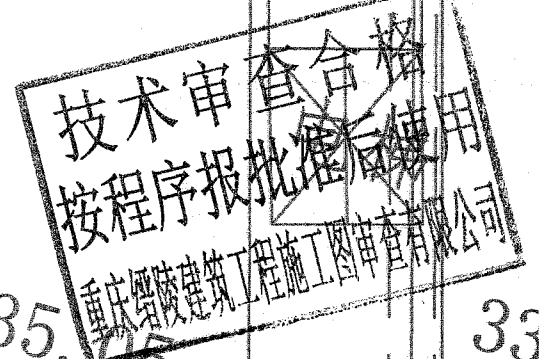 技术审查合格
按程序报批准后使用
重庆缙陵建筑工程施工图审查有限公司
35.
33